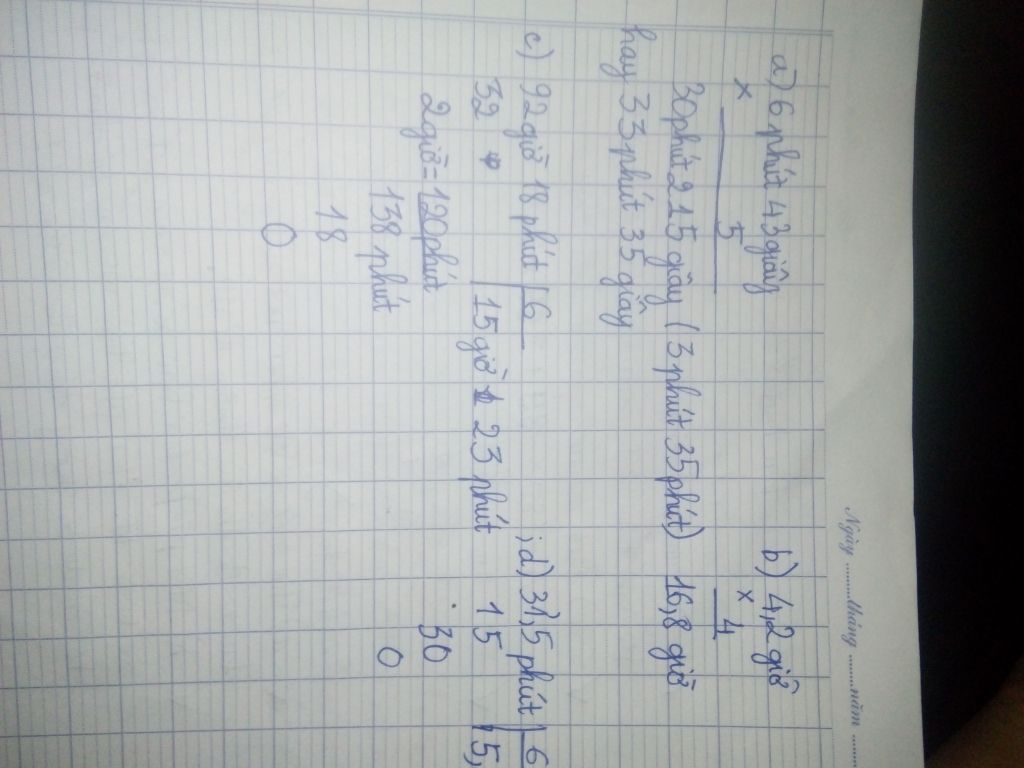 Ngày ........tháng ........năm ........
a) 6 phút 43 giây
×
5
30 phút 215 giây (3 phút 35 phút)
hay 33 phút 35 giây
b) 4,2 giờ
×
4
16,8 giờ
c) 92 giờ 18 phút 6
32
15 giờ 23 phút
2 giờ = 120 phút
138 phút
18
0
; d) 31,5 phút 6
15
5,
30
0